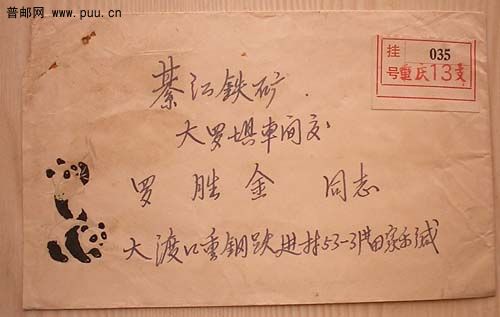 普邮网 www.puu.cn
挂 035
号 重庆13支
綦江鉄矿
大罗坝車间交
罗胜金 同志
大渡口重钢跃进村53-3
缄